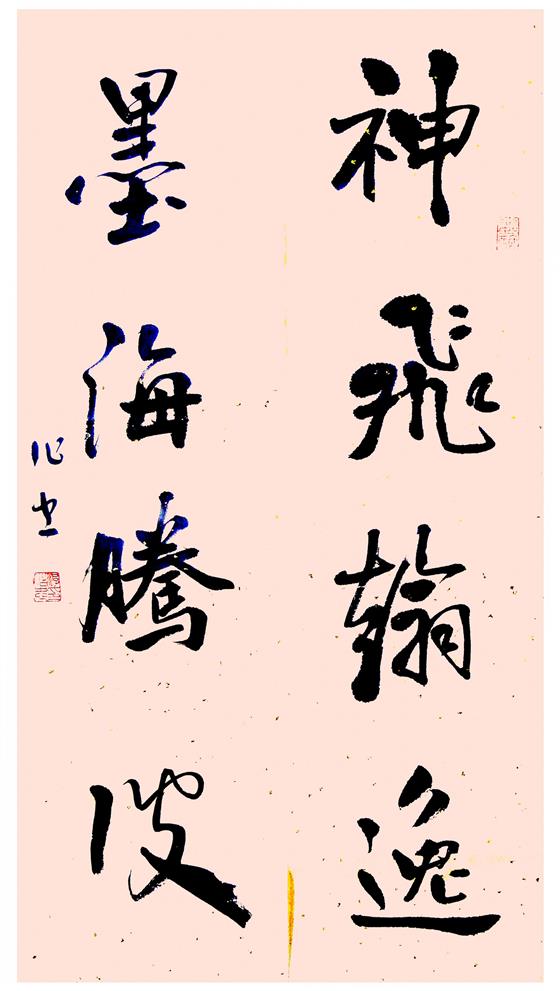 神飛翰逸
墨海騰波